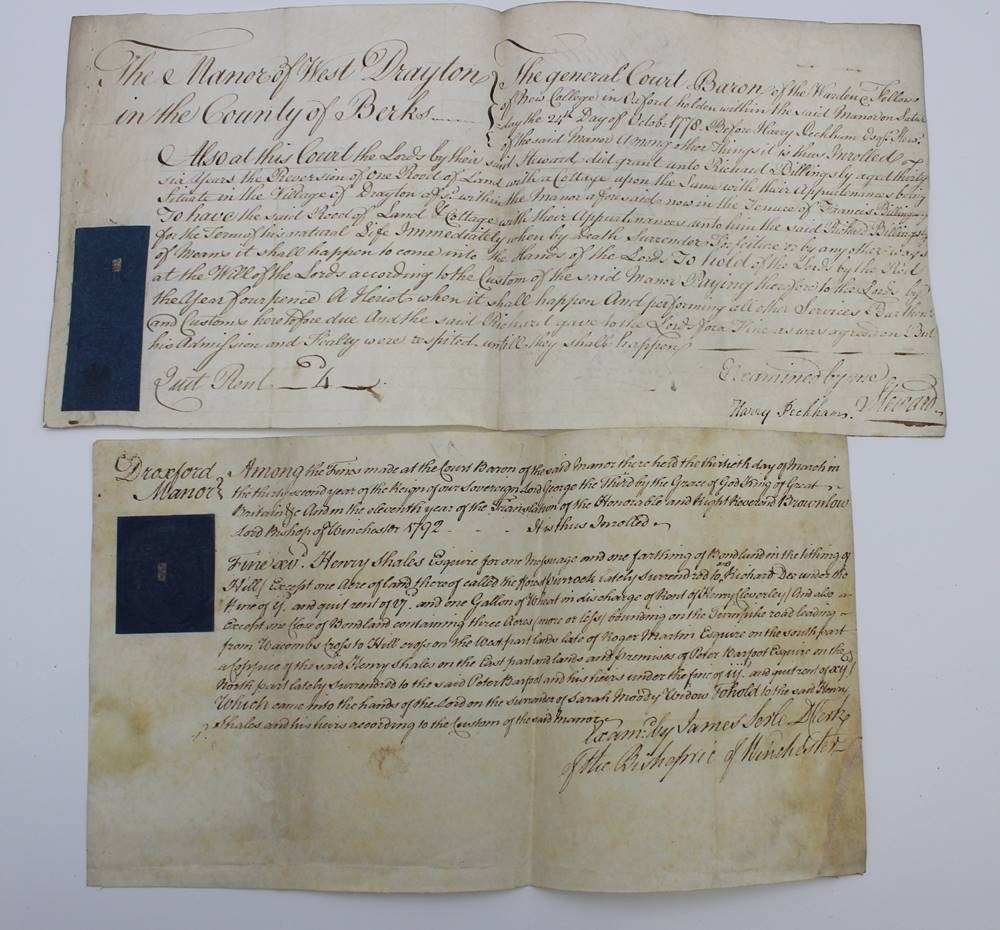 The Manor of West Drayton
in the County of Berks
The general Court Baron of the Warden & Fellows
of New College in Oxford holden within the said Manor on Satur
day the 24th Day of Octobr. 1778. Before Harry Peckham Esqr. Stewd.
of the said Manor Among other Things it is thus Inrolled
Also at this Court the Lords by their said Steward did grant unto Richard Billingsly aged thirty
six Years the Reversion of One Rood of Land with a Cottage upon the Same with their Appurtinances being
Situate in the Village of Drayton afsd. within the Manor aforesaid now in the Tenure of Francis Billingsly
To have the said Rood of Land & Cottage with their Appurtinances unto him the said Richard Billingsly
for the Term of his natural Life Immediately when by Death Surrender Forfeiture or by any other ways
or Means it shall happen to come into the Hands of the Lords To hold of the Lords by the Rod
at the Will of the Lords according to the Custom of the said Manor Paying therefore to the Lords by
the Year fourpence A Heriot when it shall happen And performing all other Services
and Customs heretofore due And the said Richard gave to the Lords for a Fine as was agreed on But
his Admission and Fealty were respited untill they shall happen
Quit Rent 4
Examined by me
Harry Peckham. Steward
Droxford
Manor
Among the Fines made at the Court Baron of the said Manor there held the thirtieth day of March in
the thirty second year of the Reign of our Sovereign Lord George the Third by the Grace of God King of Great
Britain &c And in the eleventh year of the Translation of the Honorable and Right Reverend Brownlow
Lord Bishop of Winchester 1792 - - - It is thus Inrolled
Fine xvd. Henry Shales Esquire for one Messuage and one farthing of Bondland in the tithing of
Hill (Except one Acre of land thereof called the Purrock lately Surrendred to Richard Dee under the
fine of and quit rent of and one Gallon of Wheat in discharge of Rent of Henry Cleverley) And also
Except one Close of Bondland containing three Acres (more or less) bounding on the Turnpike road leading
from Wacombs Cross to Hill cross on the West part lands late of Roger Martin Esquire on the south part
a Coppice of the said Henry Shales on the East part and lands and Premises of Peter Barfoot Esquire on the
North part lately Surrendred to the said Peter Barfoot and his heirs under the fine of iijd. and quit rent of
Which came into the hands of the Lord on the surrender of Sarah Moody Widow To hold to the said Henry
Shales and his heirs according to the Custom of the said Manor
Examd. by James Serle D Clerk
of the Bishopric of Winchester